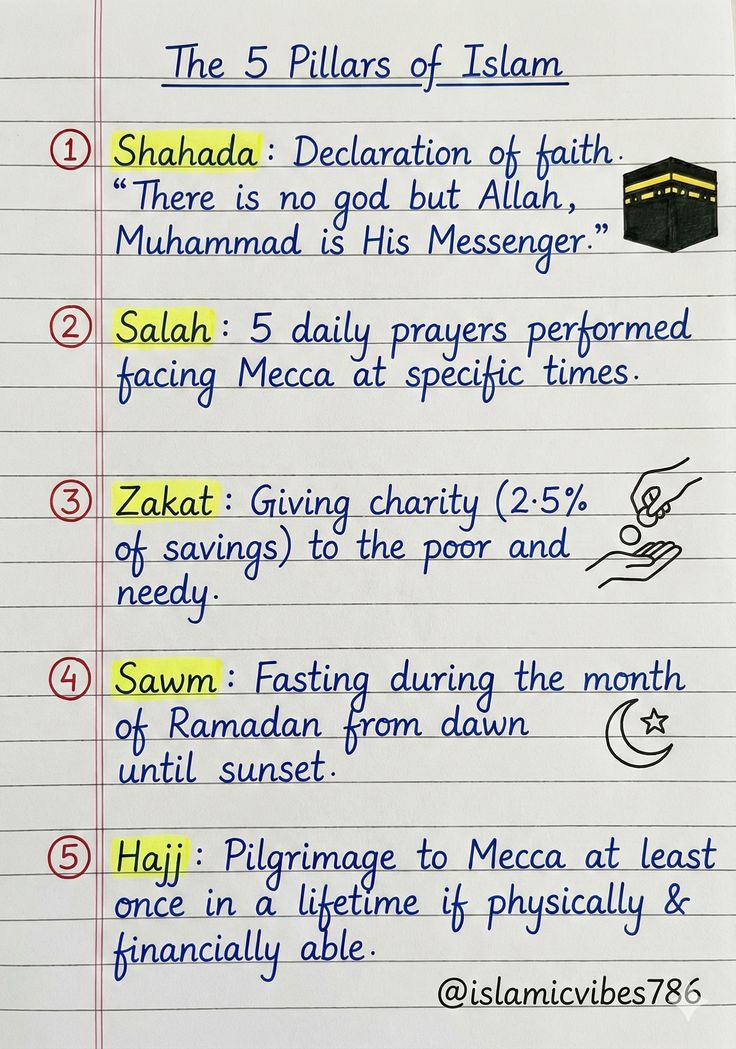 The 5 Pillars of Islam
1 Shahada: Declaration of faith.
"There is no god but Allah,
Muhammad is His Messenger."
2 Salah: 5 daily prayers performed
facing Mecca at specific times.
3 Zakat: Giving charity (2.5%
of savings) to the poor and
needy.
4 Sawm: Fasting during the month
of Ramadan from dawn
until sunset.
5 Hajj: Pilgrimage to Mecca at least
once in a lifetime if physically &
financially able.
@islamicvibes786